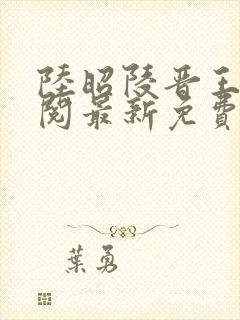 陸昭陵晋王
閱最新免費
葉勇